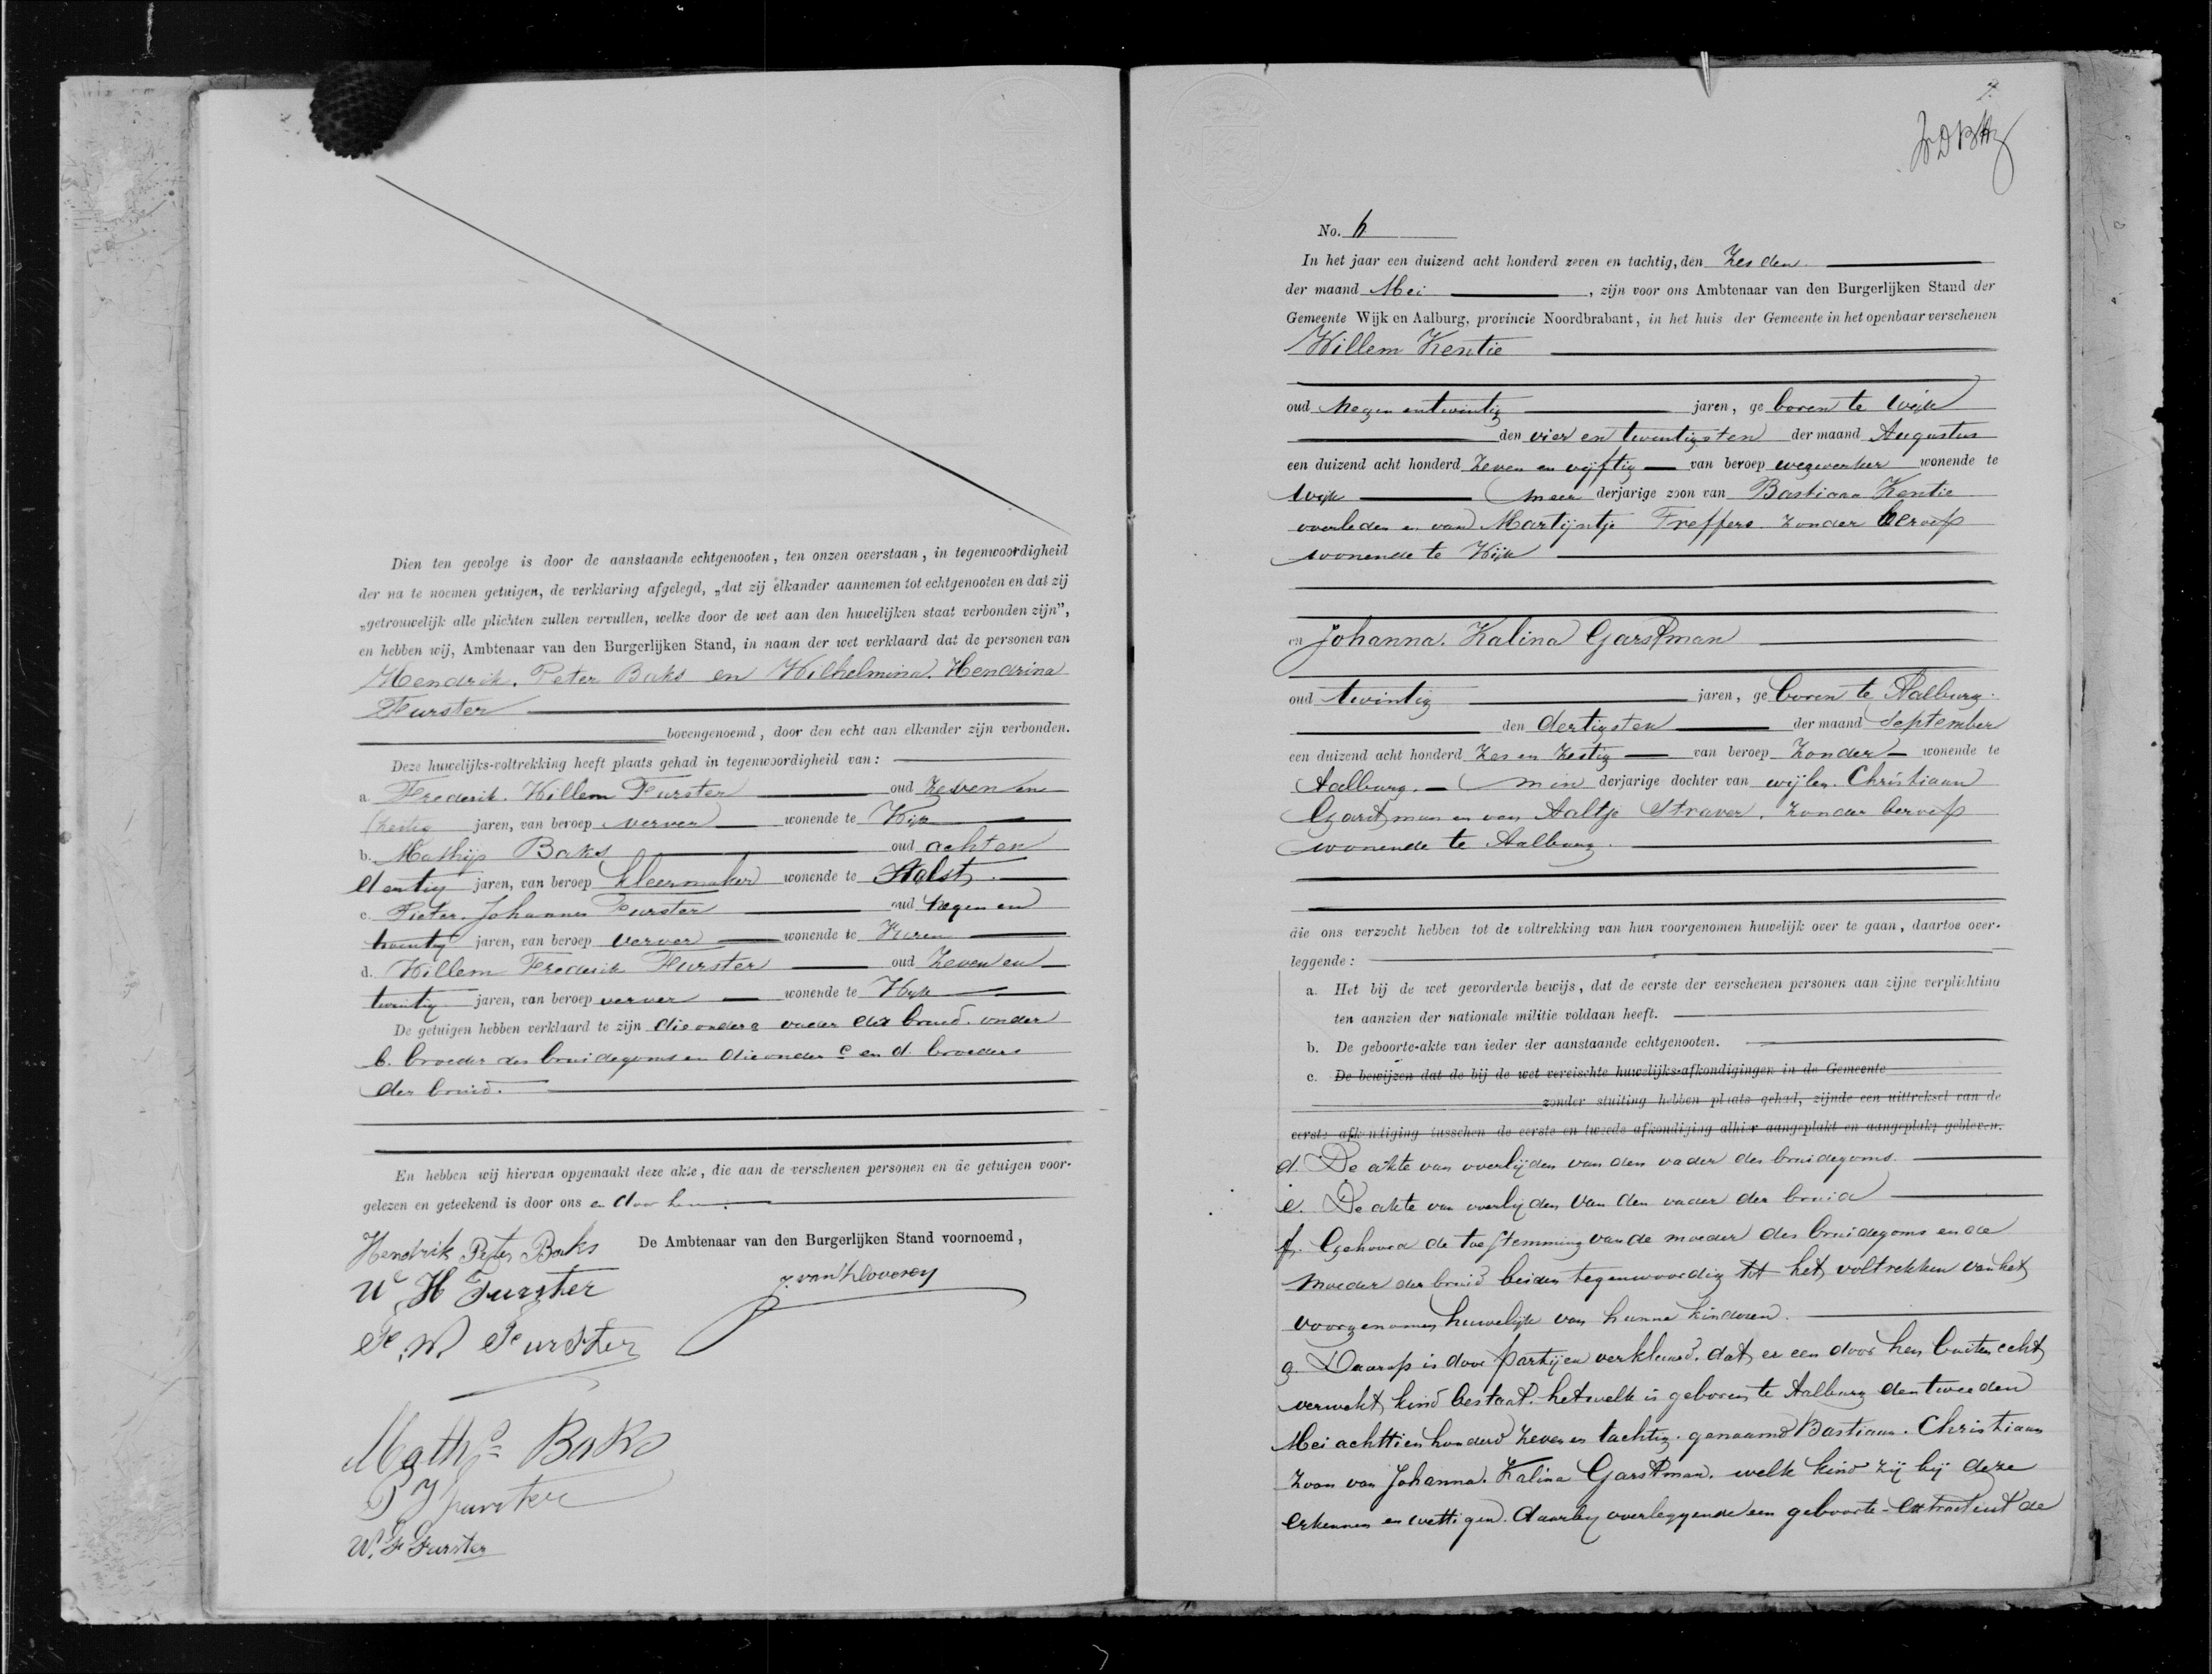 Dien ten gevolge is door de aanstaande echtgenooten, ten onzen overstaan, in tegenwoordigheid
der na te noemen getuigen, de verklaring afgelegd, „dat zij elkander aannemen tot echtgenooten en dat zij
„getrouwelijk alle plichten zullen vervullen, welke door de wet aan den huwelijken staat verbonden zijn”,
en hebben wij, Ambtenaar van den Burgerlijken Stand, in naam der wet verklaard dat de personen van
Hendrik. Peter Baks en Wilhelmina. Hendrina
Furster
bovengenoemd, door den echt aan elkander zijn verbonden.
Deze huwelijks-voltrekking heeft plaats gehad in tegenwoordigheid van:
a. Frederik. Willem Furster oud zeven en
zestig jaren, van beroep verver wonende te Wijk
b. Mathijs Baks oud acht en
dertig jaren, van beroep kleermaker wonende te Aalst.
c. Pieter. Johannes Furster oud negen en
twintig jaren, van beroep verver wonende te
d. Willem Frederik Furster oud zeven en
twintig jaren, van beroep verver wonende te Wijk
De getuigen hebben verklaard te zijn die onder a vader der bruid. onder
b. broeder des bruidegoms en die onder c en d. broeders
der bruid.
En hebben wij hiervan opgemaakt deze akte, die aan de verschenen personen en de getuigen voor-
gelezen en geteekend is door ons en door hen.
De Ambtenaar van den Burgerlijken Stand voornoemd,
Hendrik Peter Baks
W H Furster
F. W Furster
Maths Baks
P J Furster
W. F Furster
7.
No. 6
In het jaar een duizend acht honderd zeven en tachtig, den Zesden.
der maand Mei, zijn voor ons Ambtenaar van den Burgerlijken Stand der
Gemeente Wijk en Aalburg, provincie Noordbrabant, in het huis der Gemeente in het openbaar verschenen
Willem Kentie
oud negen en twintig jaren, geboren te Wijk
den vier en twintigsten der maand Augustus
een duizend acht honderd zeven en vijftig van beroep wegwerker wonende te
Wijk meerderjarige zoon van Bastiaan Kentie
overleden en van Martijntje Treffers zonder beroep
wonende te Wijk
en Johanna. Kalina Garstman
oud twintig jaren, geboren te Aalburg.
den dertigsten der maand September
een duizend acht honderd zes en zestig van beroep zonder wonende te
Aalburg. minderjarige dochter van wijlen. Christiaan
Garstman en van Aaltje Straver. zonder beroep
wonende te Aalburg.
die ons verzocht hebben tot de voltrekking van hun voorgenomen huwelijk over te gaan, daartoe over-
leggende:
a. Het bij de wet gevorderde bewijs, dat de eerste der verschenen personen aan zijne verplichting
ten aanzien der nationale militie voldaan heeft.
b. De geboorte-akte van ieder der aanstaande echtgenooten.
c. De bewijzen dat de bij de wet vereischte huwelijks-afkondigingen in de Gemeente
zonder stuiting hebben plaats gehad, zijnde een uittreksel van de
eerste afkondiging tusschen de eerste en tweede afkondiging alhier aangeplakt en aangeplakt gebleven.
d. De akte van overlijden van den vader des bruidegoms.
e. De akte van overlijden van den vader der bruid
f. Gehoord de toestemming van de moeder des bruidegoms en de
moeder der bruid beiden tegenwoordig tot het voltrekken van het
voorgenomen huwelijk van hunne kinderen.
g. Daarop is door partijen verklaard. dat er een door hen buiten echt
verwekt kind bestaat. hetwelk is geboren te Aalburg den tweeden
Mei achttien honderd zeven en tachtig. genaamd Bastiaan. Christiaan
zoon van Johanna. Kalina Garstman. welk kind zij bij deze
erkennen en wettigen. daarbij overleggende een geboorte-extract uit de